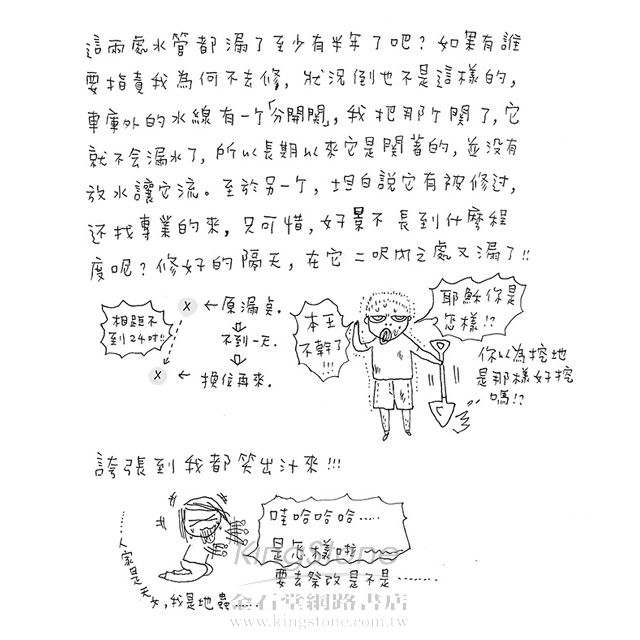 這兩處水管都漏了至少有半年了吧？如果有誰
要指責我為何不去修，狀況倒也不是這樣的，
車庫外的水線有一个「分開關」，我把那个關了，它
就不會漏水了，所以長期以來它是關著的，並沒有
放水讓它流。至於另一个，坦白說它有被修过，
还找專業的來，只可惜，好景不長到什麼程
度呢？修好的隔天，在它二呎內之處又漏了!!
相距不
到24吋!!
x ←原漏点.
不到一天.
x ← 換位再來.
本王
不幹了
!!!
耶穌你是
怎樣!?
你以為挖地
是那樣好挖
嗎!?
誇張到我都笑出汁來!!!
哇哈哈哈……
是怎樣啦
要去祭改是不是……
……人家是天女,我是地蟲……
KingStone
金石堂網路書店
www.kingstone.com.tw